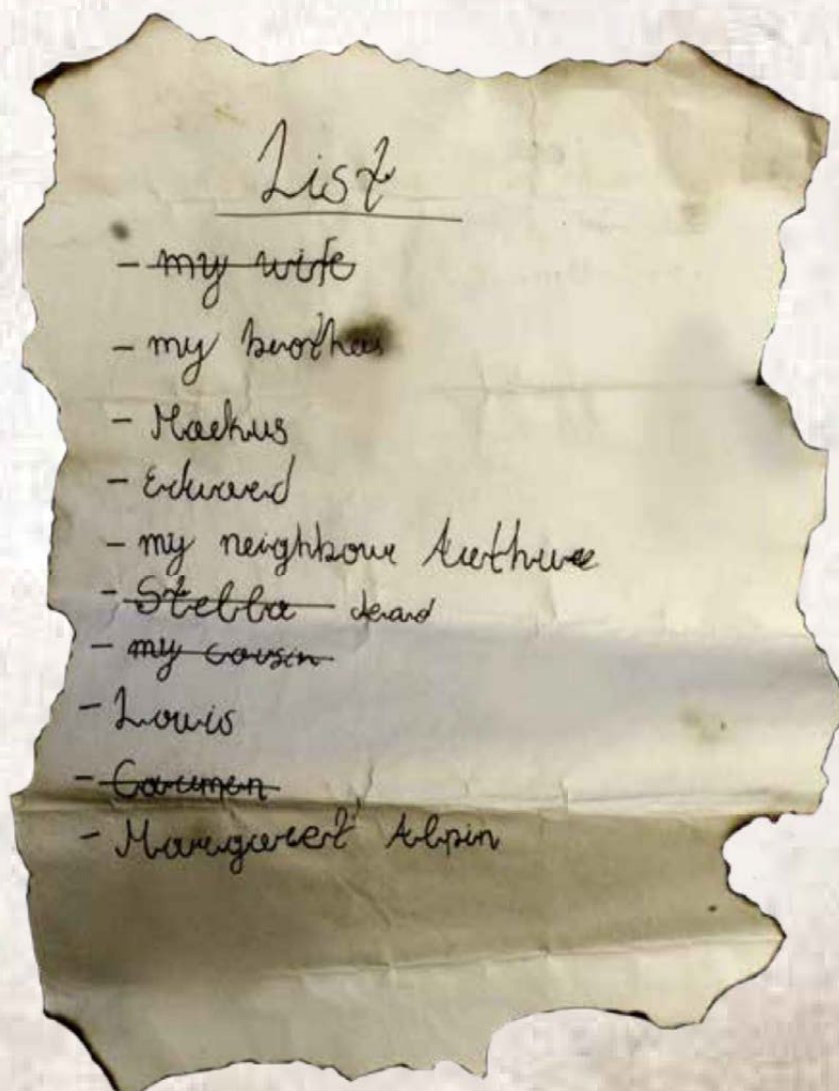 List
- my wife
- my brother
- Markus
- Edward
- my neighbour Arthur
- Stella dead
- my cousin
- Louis
- Carmen
- Margaret Alpin